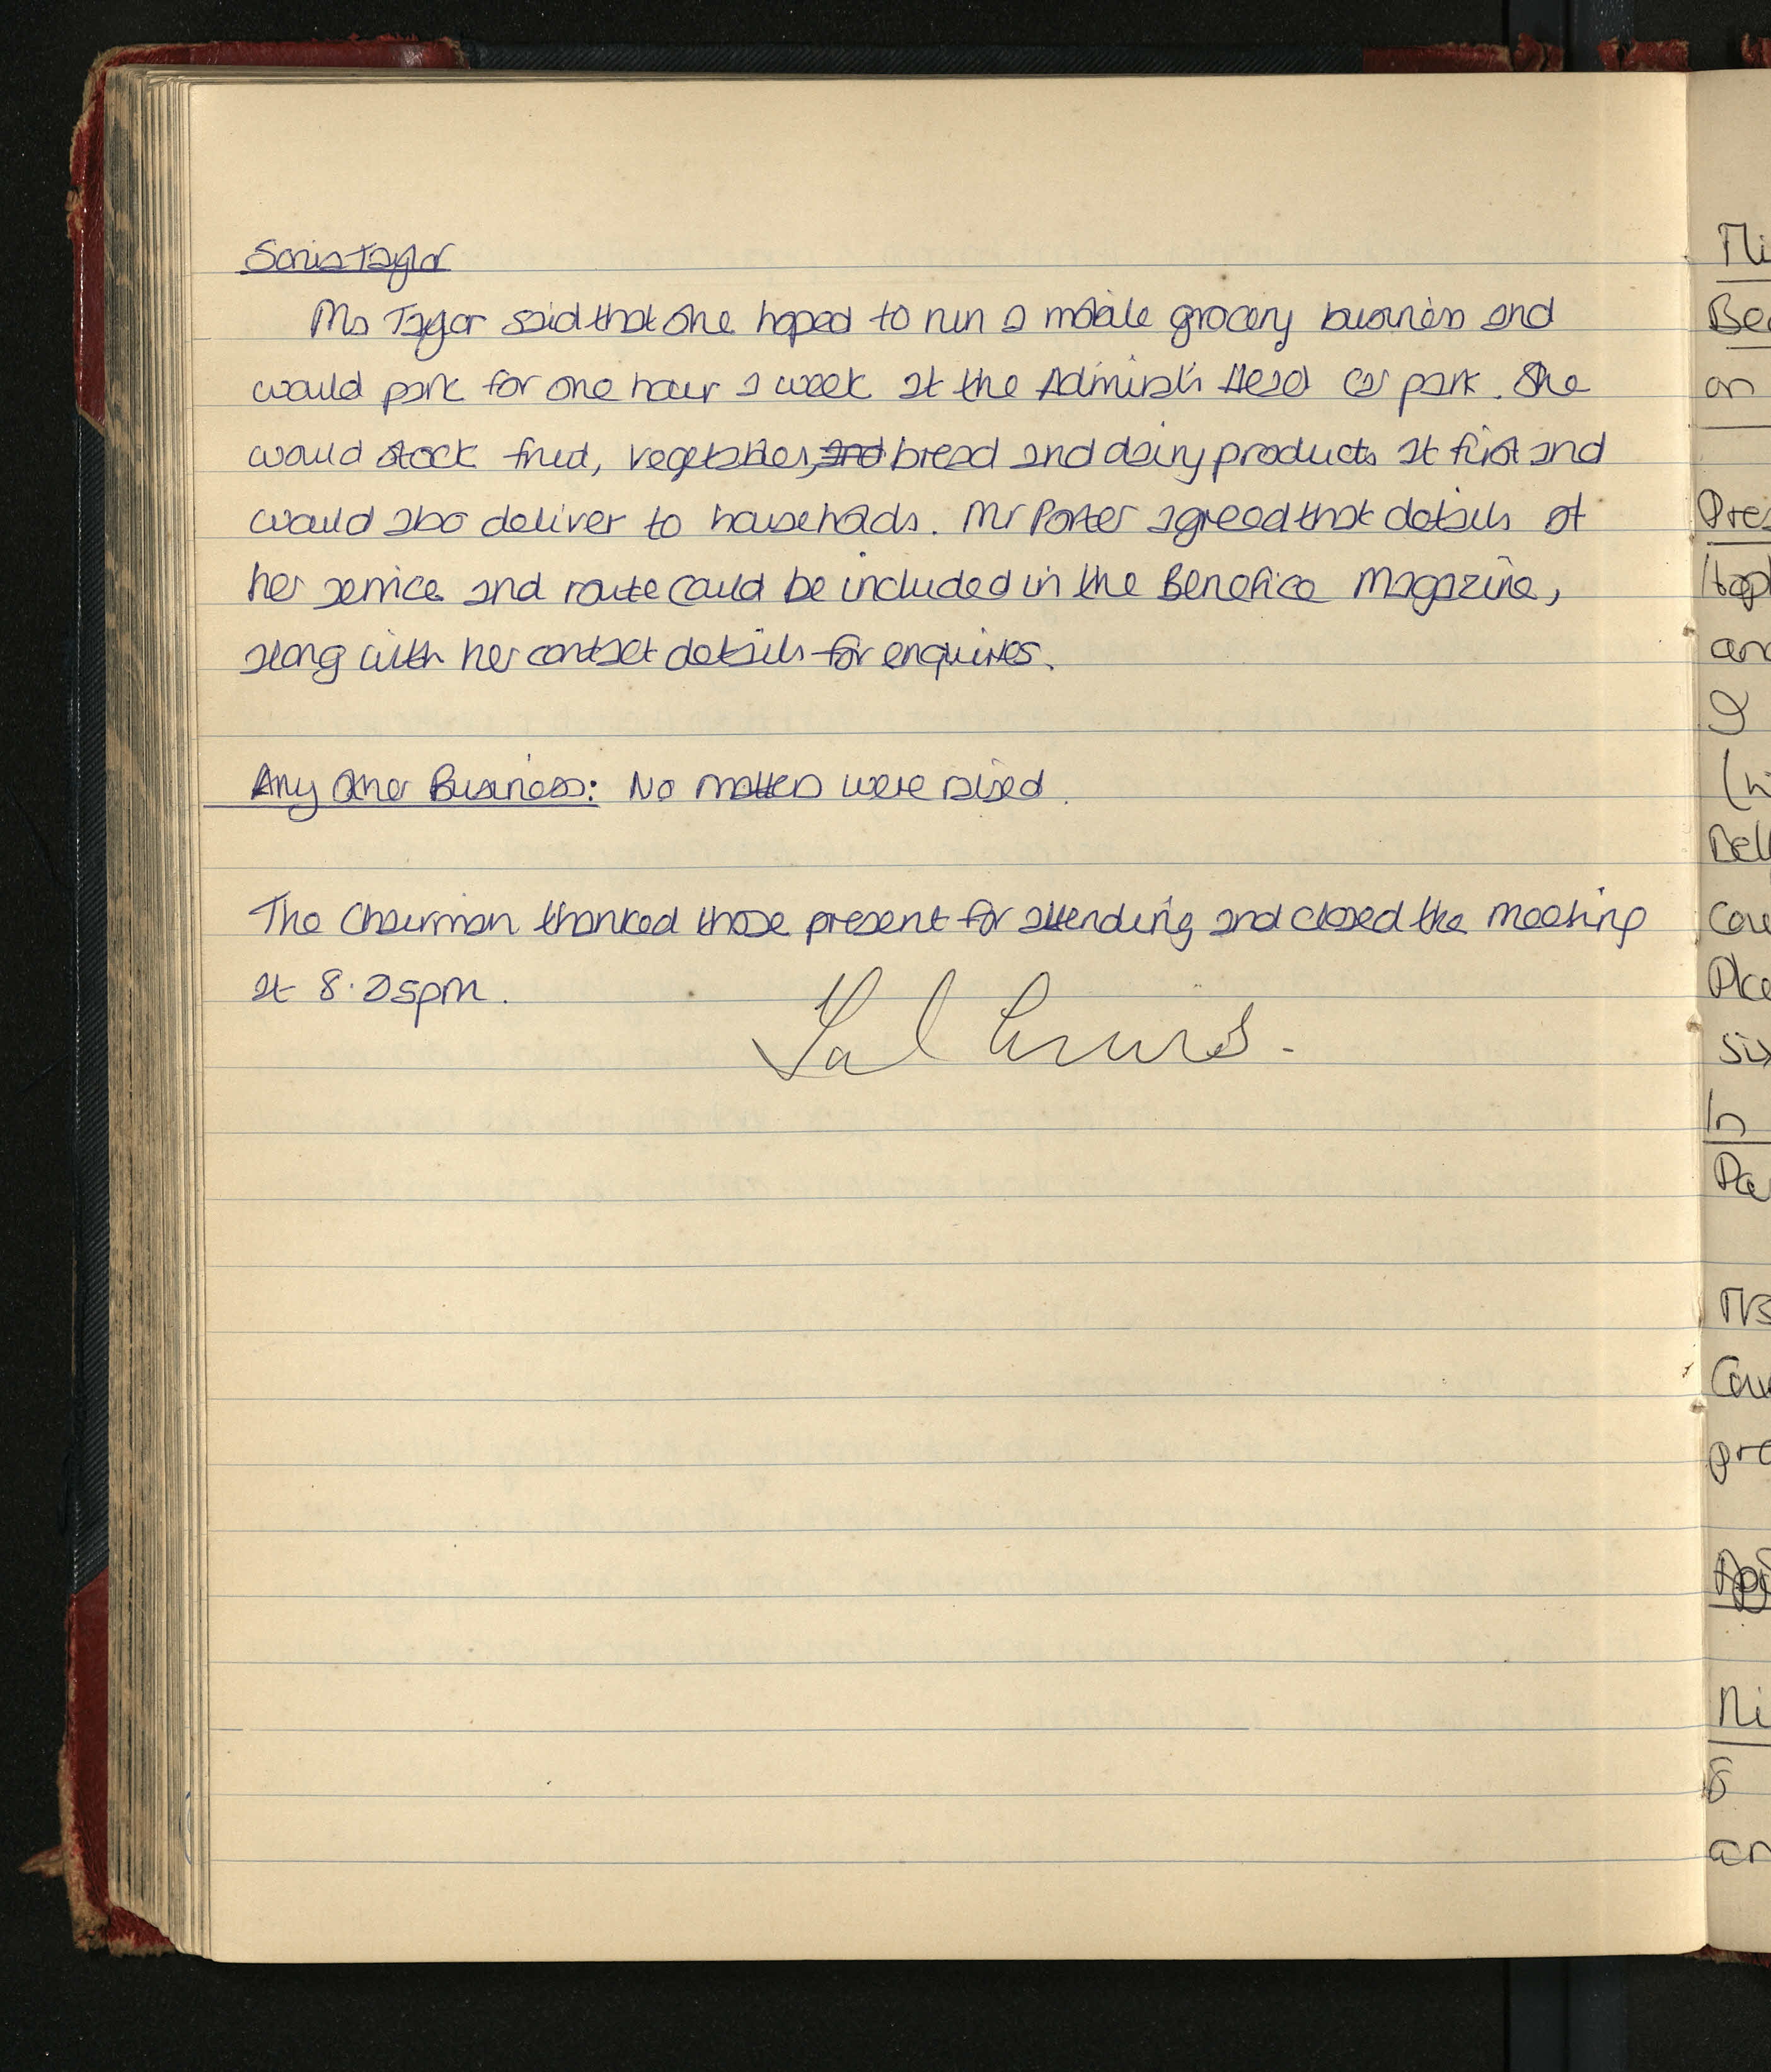 Sonia Taylor
Ms Taylor said that she hoped to run a mobile grocery business and
would park for one hour a week at the Admiral's Head car park. She
would stock fruit, vegetables, and bread and dairy products at first and
would also deliver to households. Mr Porter agreed that details of
her service and route could be included in the Benefice Magazine,
along with her contact details for enquiries.
Any Other Business: No matters were raised.
The Chairman thanked those present for attending and closed the meeting
at 8.25pm.